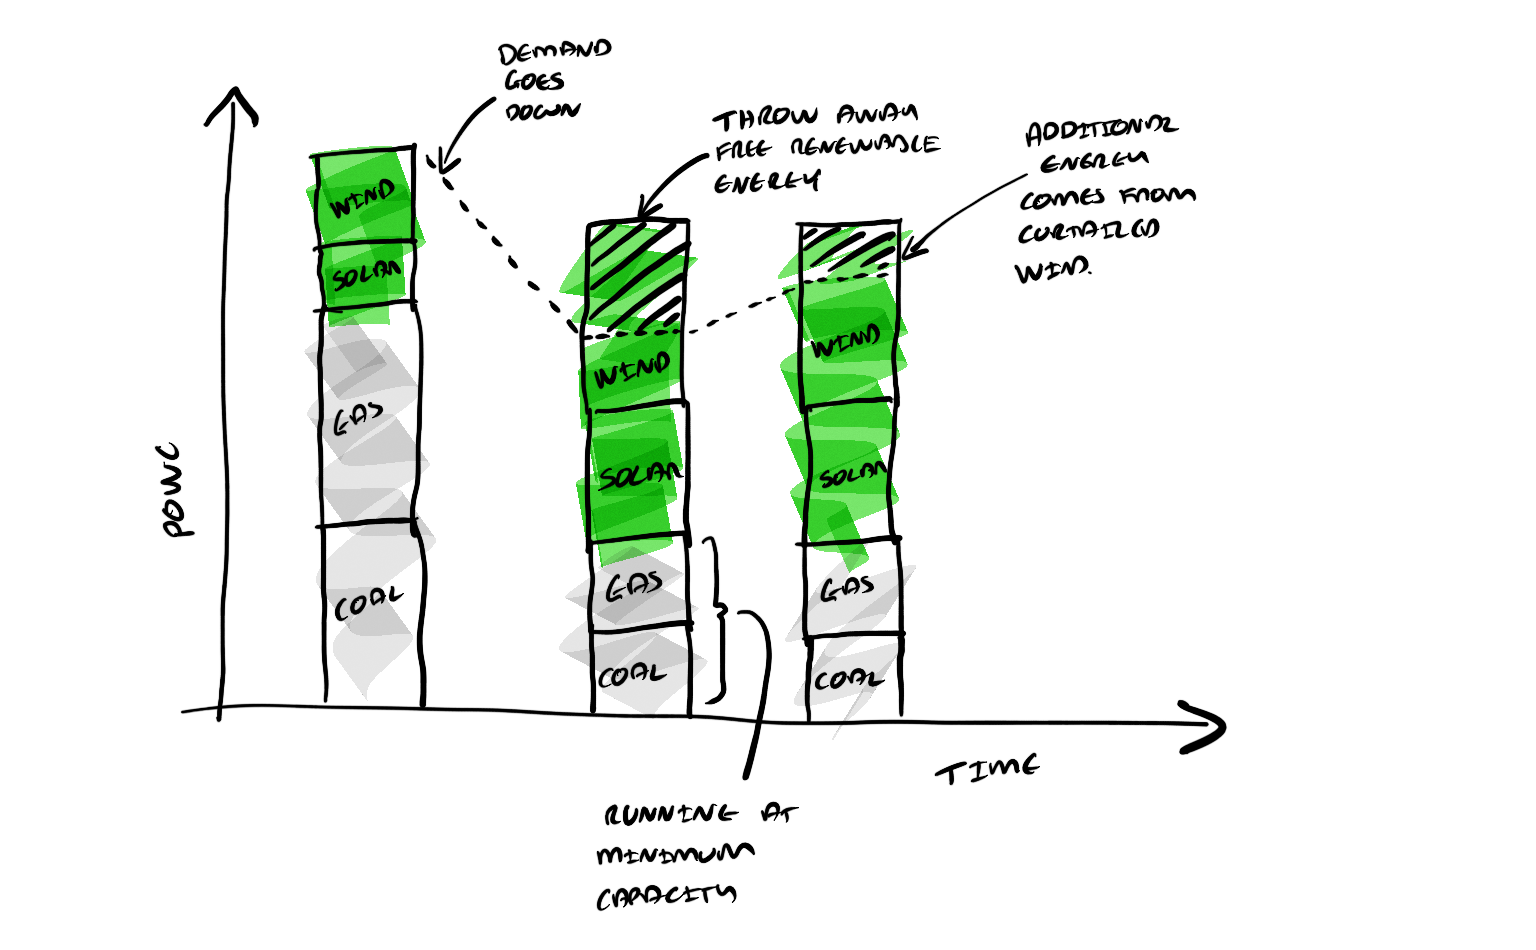 DEMAND
GOES
DOWN
THROW AWAY
FREE RENEWABLE
ENERGY
ADDITIONAL
ENERGY
COMES FROM
CURTAILED
WIND.
WIND
SOLAR
GAS
COAL
WIND
SOLAR
GAS
COAL
WIND
SOLAR
GAS
COAL
TIME
RUNNING AT
MINIMUM
CAPACITY